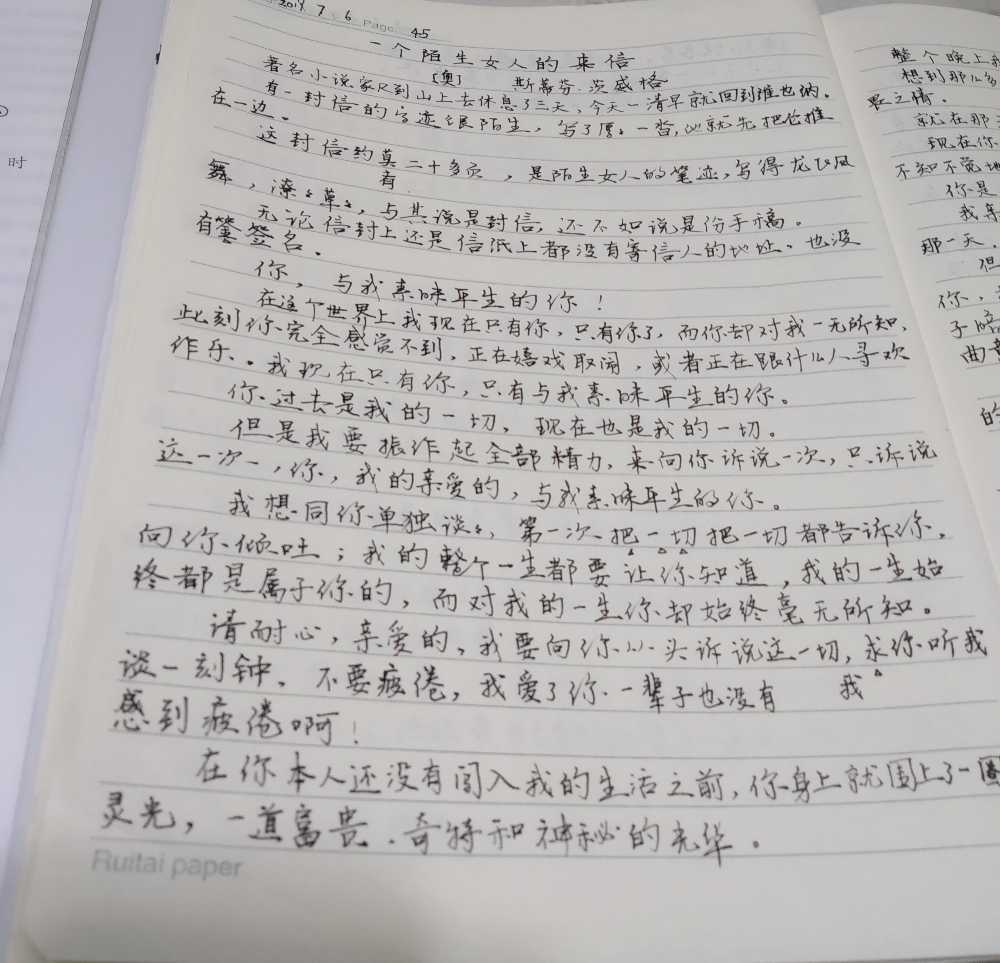 2019. 7 6 Page 45
一个陌生女人的来信
[奥] 斯蒂芬·茨威格
著名小说家R到山上去休息了三天,今天一清早就回到维也纳。
有一封信的字迹很陌生,写了厚厚一沓,他就先把它推
在一边。
这封信约莫二十多页,是陌生女人的笔迹,写得龙飞凤
有
舞,潦潦草草,与其说是封信,还不如说是份手稿。
无论信封上还是信纸上都没有寄信人的地址,也没
有签名。
你,与我素昧平生的你!
在这个世界上我现在只有你,只有你了,而你却对我一无所知,
此刻你完全感觉不到,正在嬉戏取闹,或者正在跟什么人寻欢
作乐。我现在只有你,只有与我素昧平生的你。
你过去是我的一切,现在也是我的一切。
但是我要振作起全部精力,来向你诉说一次,只诉说
这一次,你,我的亲爱的,与我素昧平生的你。
我想同你单独谈谈,第一次把一切把一切都告诉你,
向你倾吐;我的整个一生都要让你知道,我的一生始
终都是属于你的,而对我的一生你却始终毫无所知。
请耐心,亲爱的,我要向你从头诉说这一切,求你听我
谈一刻钟,不要疲倦,我爱了你一辈子也没有 我
感到疲倦啊!
在你本人还没有闯入我的生活之前,你身上就围上了一圈
灵光,一道富贵、奇特和神秘的光华。
Ruitai paper
时
整个晚上我
想到那么多
就在那
现在你
不知不觉地
你是
我亲
那一天,
但
你,
曲
的